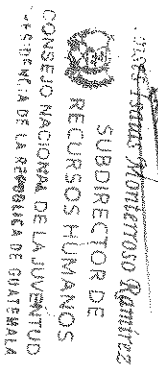 Isaias Monterroso Ramírez
SUBDIRECTOR DE
RECURSOS HUMANOS
CONSEJO NACIONAL DE LA JUVENTUD
PRESIDENCIA DE LA REPÚBLICA DE GUATEMALA